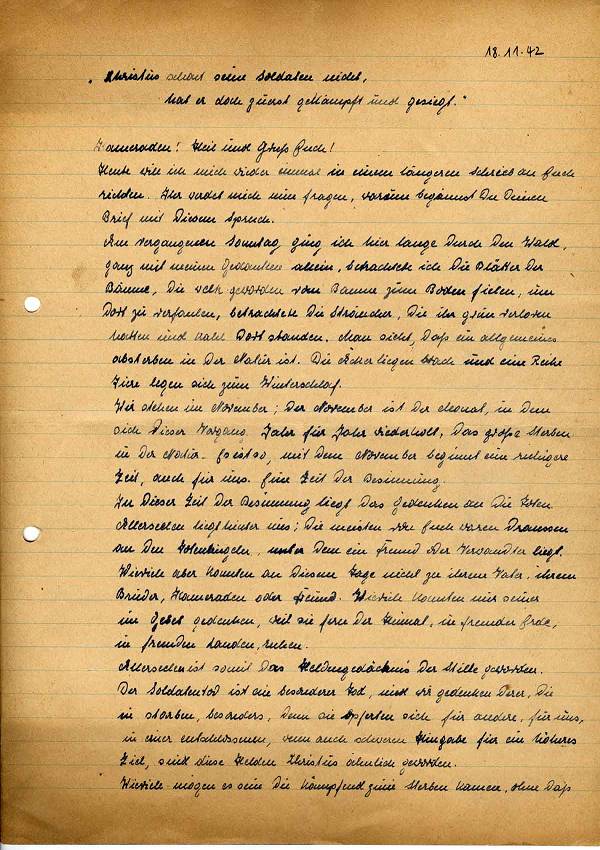 18.11.42
"Christus schont seine Soldaten nicht,
hat er doch zuerst gekämpft und gesiegt."
Kameraden! Heil und Gruss Euch!
Heute will ich mich wieder einmal in einem längeren Schreiben an Euch
richten. Ihr werdet mich nun fragen, warum beginnst Du Deinen
Brief mit Diesem Spruch.
Am vergangenen Sonntag ging ich hier lange Durch Den Wald,
ganz mit meinen Gedanken allein, betrachtete ich Die Blätter Der
Bäume, Die welk geworden vom Baume zum Boden fielen, um
Dort zu verfaulen, betrachtete Die Sträucher, Die ihr grün verloren
hatten und kahl Dort standen. Man sieht, Daß ein allgemeines
absterben in Der Natur ist. Die Äcker liegen brach und eine Reihe
Tiere legen sich zum Winterschlaf.
Wir stehen im November; Der November ist Der Monat, in Dem
sich Dieser Vorgang Jahr für Jahr wiederholt, Das große Sterben
in Der Natur. Es ist so, mit Dem November beginnt eine ruhigere
Zeit, auch für uns. Eine Zeit Der Besinnung.
In Dieser Zeit Der Besinnung liegt Das Gedenken an Die Toten
Allerseelen liegt hinter uns; Die meisten von Euch waren Draussen
an Den Totenhügeln, unter Dem ein Freund oder Verwandter liegt.
Wieviele aber konnten an Diesem Tage nicht zu ihrem Vater, ihrem
Bruder, Kameraden oder Freund. Wieviele konnten nur seiner
im Gebet gedenken, weil sie fern Der Heimat, in fremder Erde,
in fremden Landen, ruhen.
Allerseelen ist somit Das Heldengedächnis Der Stille geworden.
Der Soldatentod ist ein besonderer Tod, und wir gedenken Derer, Die
in starben, besonders, Denn sie opferten sich für andere, für uns,
in einer entschlossenen, wenn auch schweren Hingabe für ein höheres
Ziel, sind diese Helden Christus ähnlich geworden.
Wieviele mögen es sein Die kämpfend zum Sterben kamen, ohne Daß